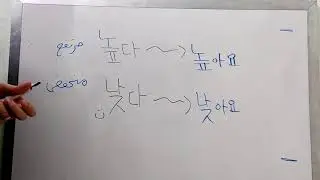 مرتفع 높다 〰→ 높아요
منخفض 낮다 〰→ 낮아요
ن